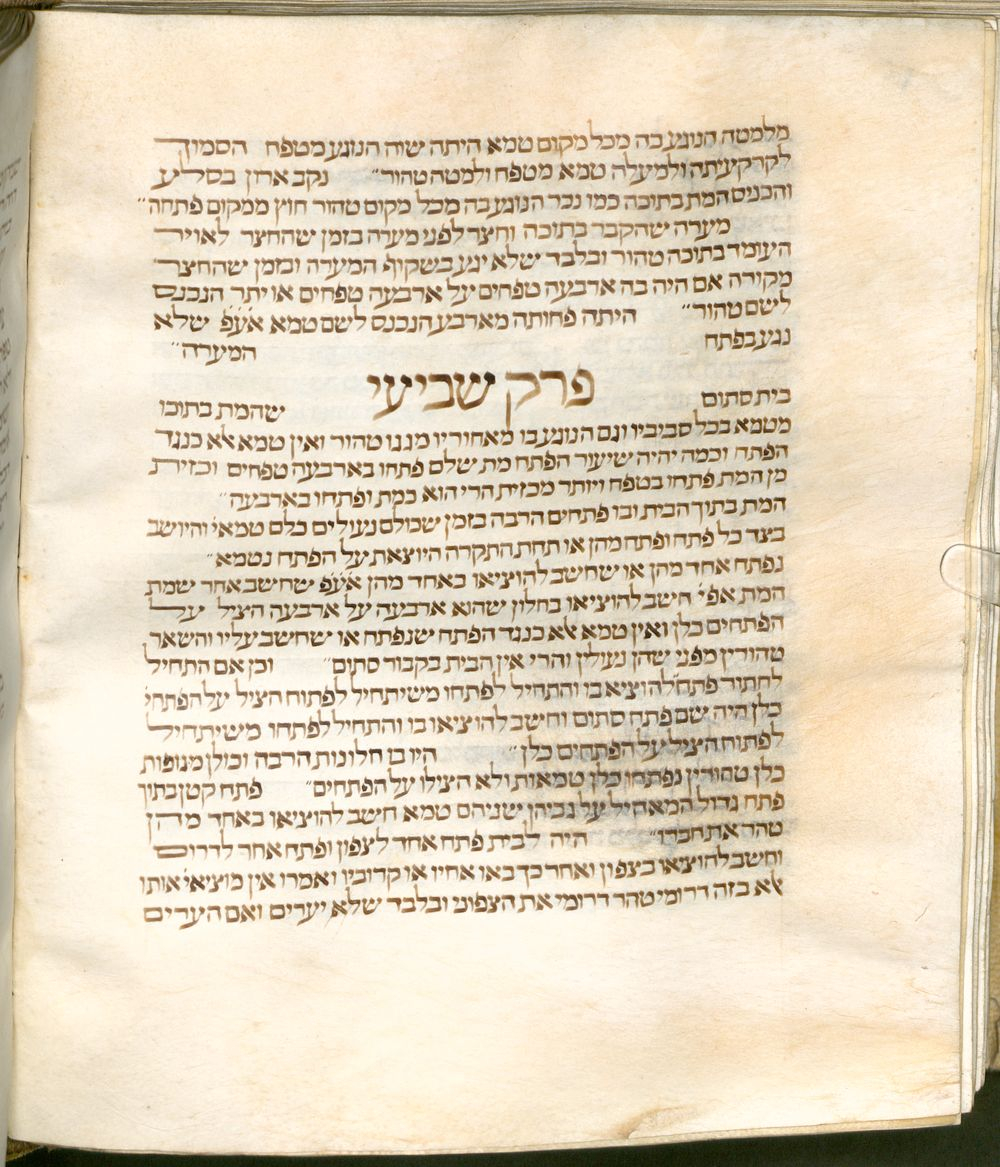 מלמטה הנוגע בה מכל מקום טמא היתה שוה הנוגע מטפח הסמוך
לקרקעיתה ולמעלה טמא מטפח ולמטה טהור״ נקב ארון בסלע
והכניס המת בתוכה כמו נכר הנוגע בה מכל מקום טהור חוץ ממקום פתחה״
מערה שהקבר בתוכה וחצר לפני מערה בזמן שהחצר לאויר
העומד בתוכה טהור ובלבד שלא יגע בשקוף המערה ובזמן שהחצר
מקורה אם היה בה ארבעה טפחים על ארבעה טפחים או יתר הנכנס
לשם טהור״ היתה פחותה מארבע הנכנס לשם טמא אעפ שלא
נגע בפתח המערה״
פרק שביעי
בית סתום שהמת בתוכו
מטמא בכל סביביו וגם הנוגע בו מאחוריו מגגו טהור ואין טמא לא כנגד
הפתח וכמה יהיה שיעור הפתח מת שלם פתחו בארבעה טפחים וכזית
מן המת פתחו בטפח ויותר מכזית הרי הוא כמת ופתחו בארבעה״
המת בתוך הבית ובו פתחים הרבה בזמן שכולם נעולים כלם טמאי׳ והיושב
בצד כל פתח ופתח מהן או תחת התקרה היוצאת על הפתח נטמא״
נפתח אחד מהן או שחשב להוציאו באחד מהן אעפ שחישב אחר שמת
המת אפי׳ חישב להוציאו בחלון שהוא ארבעה על ארבעה הציל על
הפתחים כלן ואין טמא לא כנגד הפתח שנפתח או שחישב עליו והשאר
טהורין מפני שהן נעולין והרי אין הבית כקבור סתום״ וכן אם התחיל
לחתור פתח להוציא בו והתחיל לפתחו משיתחיל לפתוח הציל על הפתחי׳
כלן היה שם פתח סתום וחישב להוציאו בו והתחיל לפתחו משיתחיל
לפתוח הציל על הפתחים כלן״ היו בו חלונות הרבה וכולן מגופות
כלן טהורין נפתחו כלן טמאות ולא הצילו על הפתחים״ פתח קטן בתוך
פתח גדול המאהיל על גביהן שניהם טמא חישב להוציאו באחד מהן
טהר את חבירו״ היה לבית פתח אחד לצפון ופתח אחר לדרום
וחשב להוציאו בצפון ואחר כך באו אחיו או קרוביו ואמרו אין מוציאי׳ אותו
לא בזה דרומי טהר דרומי את הצפוני ובלבד שלא יערים ואם הערים